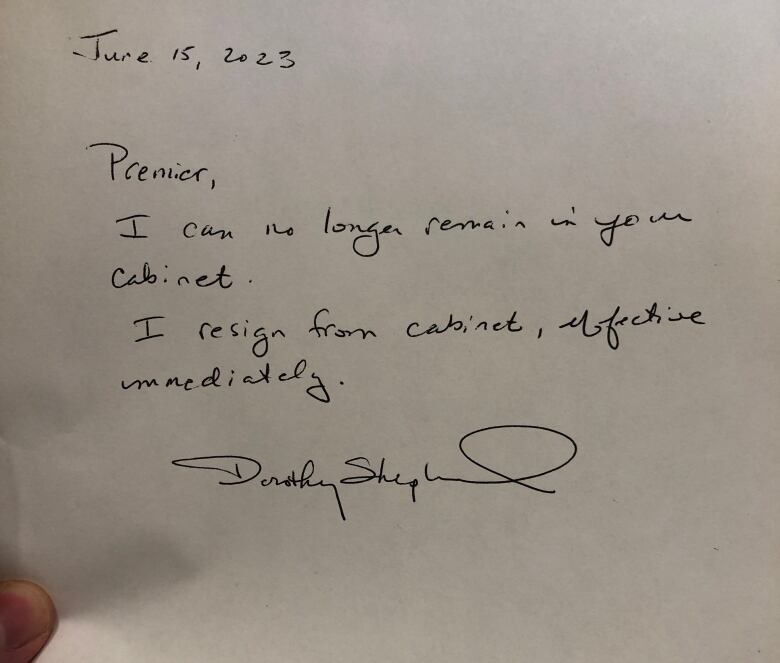 June 15, 2023
Premier,
I can no longer remain in your
cabinet.
I resign from cabinet, effective
immediately.
Dorothy Shephard